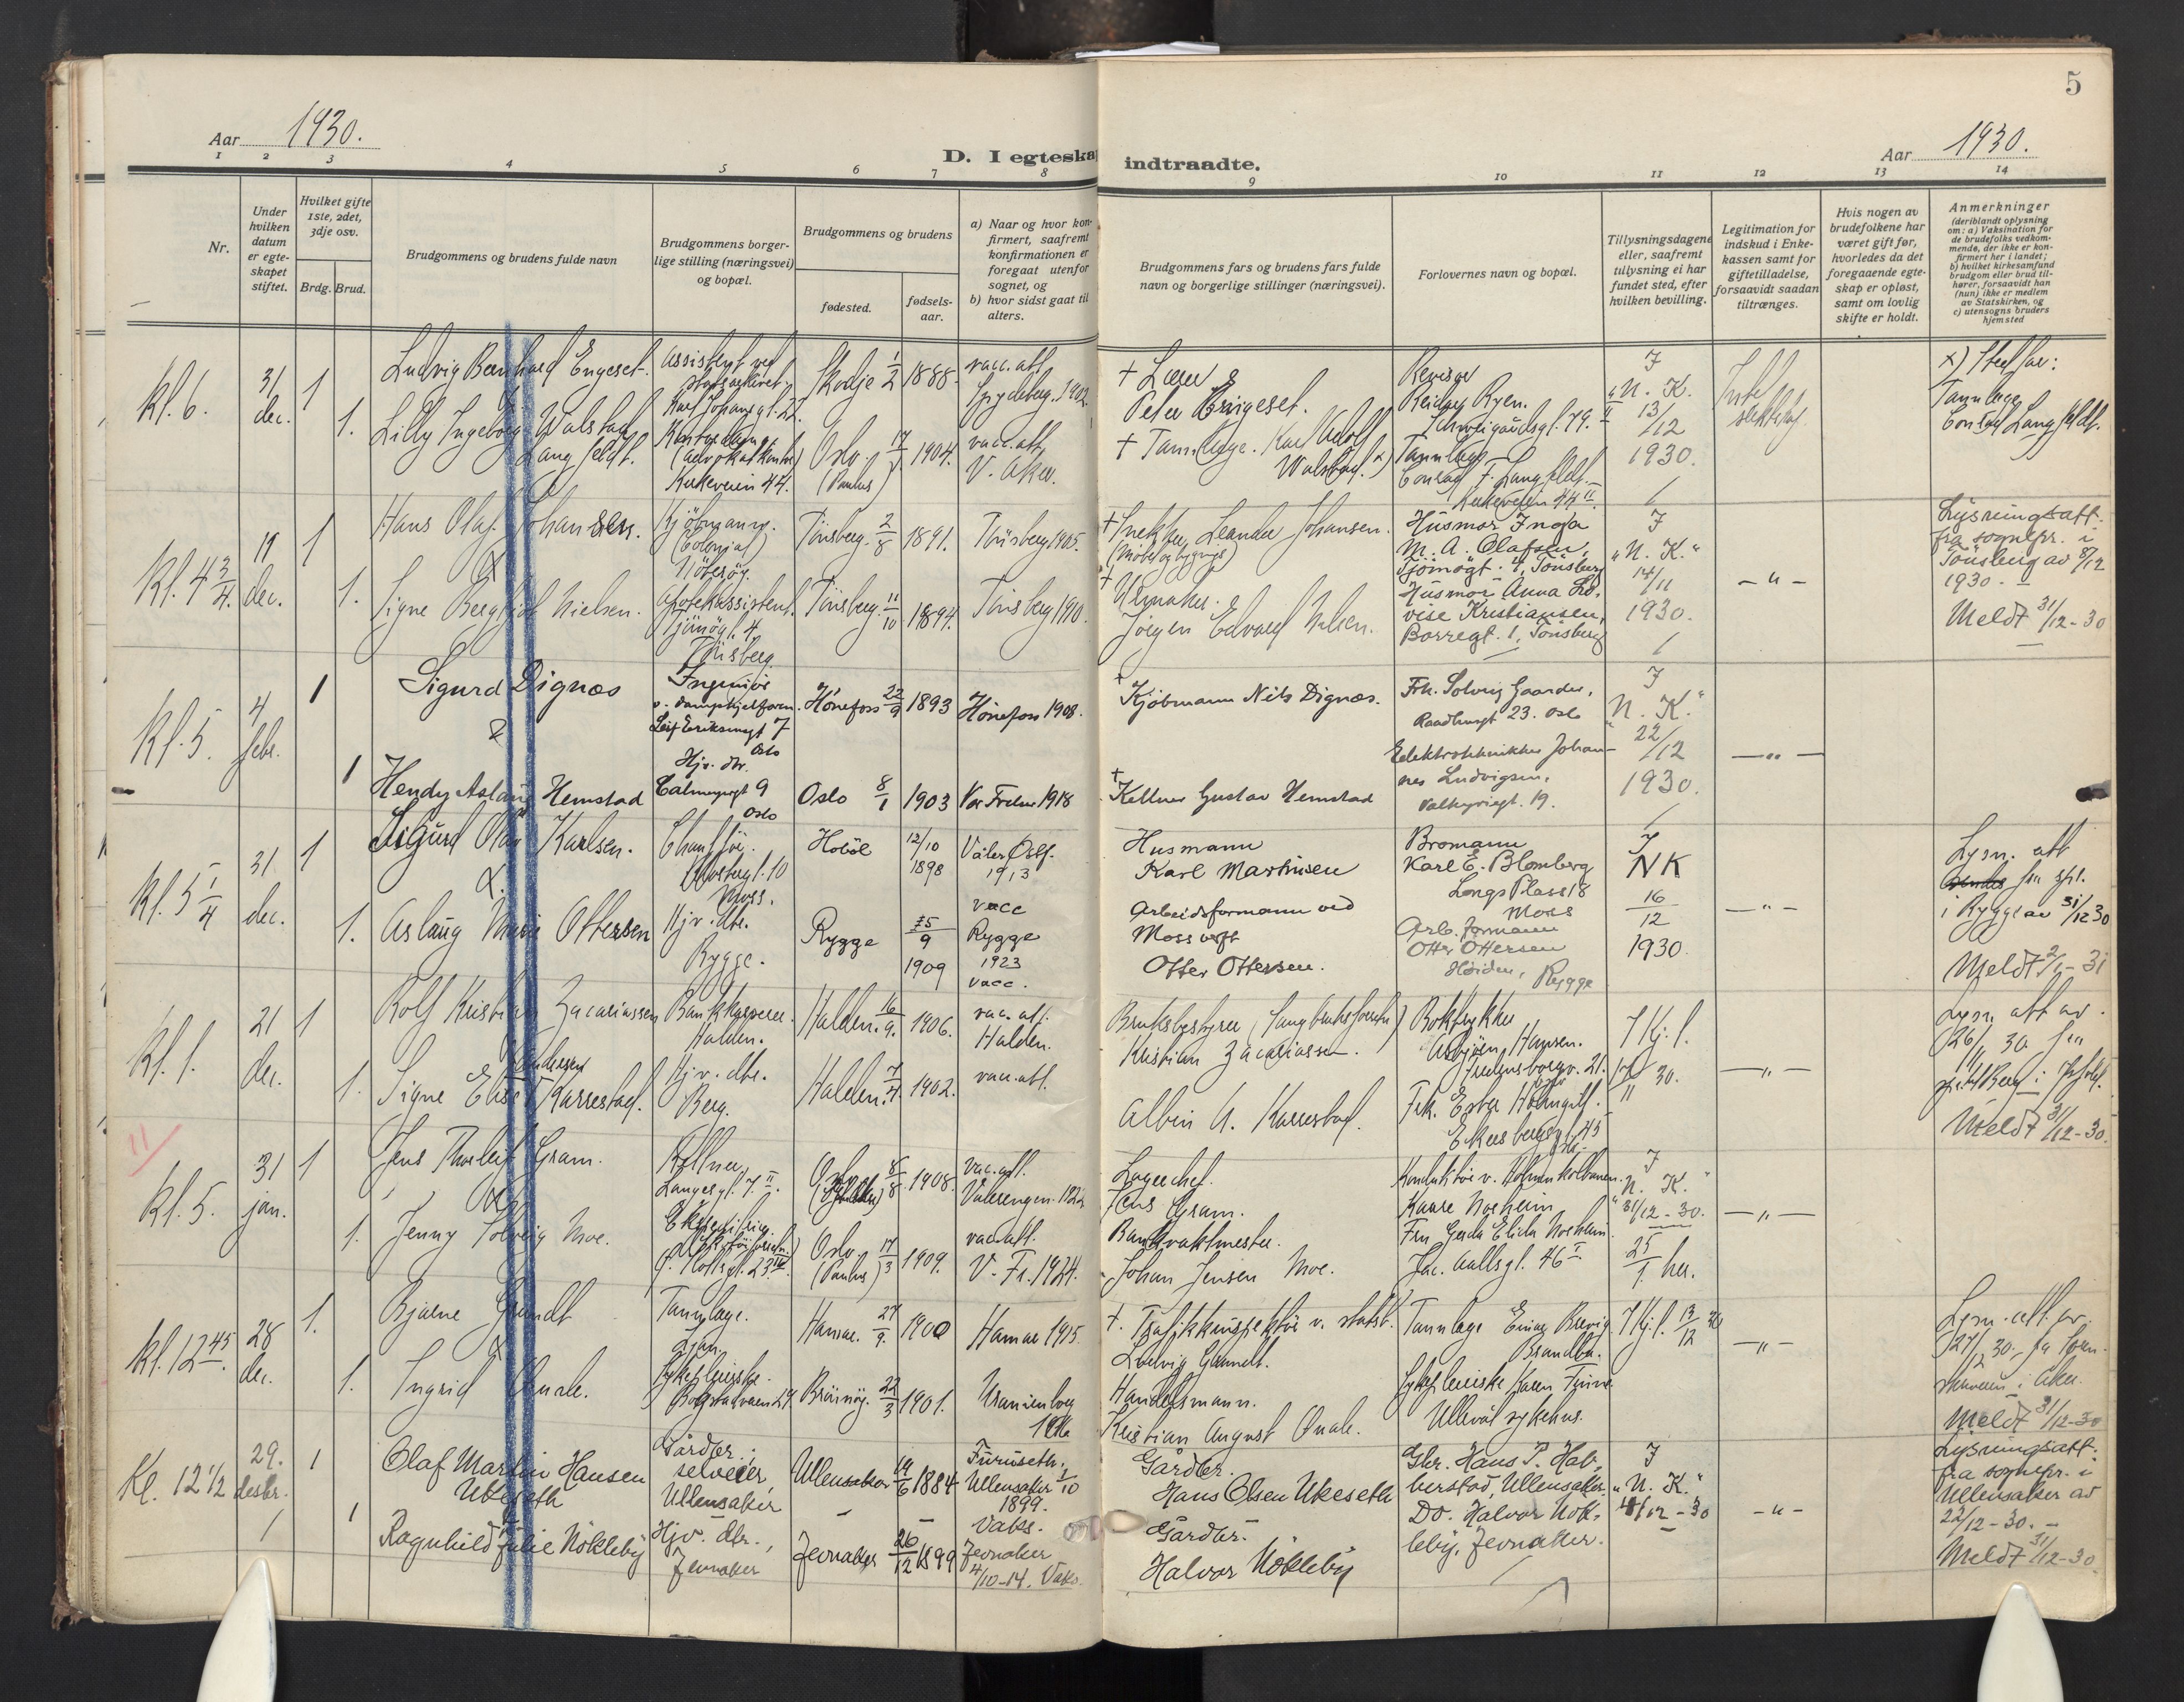 5
Aar 1930.
D. I egteska
indtraadte.
Aar 1930.
1 2 3 4 5 6 7 8 9 10 11 12 13 14
Nr.
Under hvilken datum er egte-skapet stiftet.
Hvilket gifte 1ste, 2det, 3dje osv.
Brdg. Brud.
Brudgommens og brudens fulde navn
Brudgommens borger-
lige stilling (næringsvei)
og bopæl.
Brudgommens og brudens
fødested.
fødsels-
aar.
a) Naar og hvor kon-
firmert, saafremt
konfirmationen er
foregaat utenfor
sognet, og
b) hvor sidst gaat til
alters.
Brudgommens fars og brudens fars fulde
navn og borgerlige stillinger (næringsvei).
Forlovernes navn og bopæl.
Tillysningsdagene
eller, saafremt
tillysning ei har
fundet sted, efter
hvilken bevilling.
Legitimation for
indskud i Enke-
kassen samt for
giftetilladelse,
forsaavidt saadan
tiltrænges.
Hvis nogen av
brudefolkene har
været gift før,
hvorledes da det
foregaaende egte-
skap er opløst,
samt om lovlig
skifte er holdt.
Anmerkninger
(deriblandt oplysning
om: a) Vaksination for
de brudefolks vedkom-
mende, der ikke er kon-
firmert her i landet;
b) hvilket kirkesamfund
brudgom eller brud til-
hører, forsaavidt han
(hun) ikke er medlem
av Statskirken, og
c) utensogns bruders
hjemsted
Kl. 6. 31 dec. 1
Ludvig Bernhard Engeset.
Assistent ved
Skodje 1/2 1888.
vacc. att.
Spydeberg. 1902.
+ Lærer
Peter Engeset.
Revisor
Reidar Ryen.
Schweigaardsgt. 79. II
J
"N. K.
13/12
1930.
x) Stedfar:
Tannlege
Conrad Langfeldt.
&
1. Lilly Ingeborg Walstad
Langfeldt.
Kirkeveien 44.
Oslo (Paulus) 17 1904.
vacc. att.
V. Aker.
+ Tannlege. Karl Adolf
Walstad. x)
Tannlege
Conrad F. Langfeldt.
Kirkeveien 44 II
Kl. 4 3/4. 11 dec. 1
Hans Olaf Johansen.
Kjöbmann.
(Colonial)
Nöterøy.
Tönsberg. 2/8 1891.
Tönsberg 1905.
+ Snekker Leander Johansen.
Husmor Inga
M. A. Olafsen,
Tjömögt. 4, Tönsberg
J
"N. K."
14/11
1930.
- " -
Lysningsatt.
fra sognepr. i
Tönsberg av 8/12
1930. -
Meldt 31/12-30
&
1. Signe Bergljot Nielsen.
Apotekassistent.
Tjömögt. 4.
Tönsberg.
Tönsberg. 11/10 1894.
Tönsberg 1910.
+ Urmaker
Jörgen Edvard Nielsen.
Husmor Anna Lo-
vise Kristiansen,
Borregt. 1, Tönsberg
Kl. 5. 4 febr. 1
Sigurd Dignæs
Ingeniör
v. dampkjelforen.
Leif Eriksensgt 7
Oslo
Hönefoss 22/9 1893
Hönefoss 1908.
+ Kjöbmann Nils Dignæs.
Frk. Solveig Gaarder,
Raadhusgt 23. Oslo
J
"N. K."
22/12
1930.
- " -
&
1 Hendy Aslaug Hemstad
Hjv. dtr.
Calmeyersgt 9
Oslo
Oslo 8/1 1903
Vor Frelser 1918
+ Kellner Gustav Hemstad
Elektrotekniker Johan-
nes Ludvigsen,
Valkyriegt. 19.
Kl. 5 1/4 31 dec. 1
Sigurd Olav Karlsen.
Chaufför.
Moss.
Hobøl 12/10 1898
Våler Östf.
1913
vacc
Husmann
Karl Martinsen
Bromann
Karl E. Blomberg
Longs Plass 18
Moss
J
NK
16/12
1930
- " -
Lysn. att
fra spr.
i Rygge av 31/12 30
Meldt 2/1-31
&
1. Aslaug Marie Ottersen
Hjv. dtr.
Rygge.
Rygge 25/9 1909
Rygge
1923
vacc.
Arbeidsformann ved
Moss verft
Otter Ottersen.
Arb. formann
Otter Ottersen
Höiden, Rygge
Kl. 1. 21 dec. 1
Rolf Kristian Zacariassen
Bankkasserer.
Halden.
Halden. 16/9. 1906.
vac. att.
Halden.
Bruksbestyrer
Kristian Zacariassen.
Boktrykker
Asbjörn Hansen.
Fredensborgv. 21.
J Kj. l.
30.
- " -
Lysn. att av
Meldt 31/12-30.
1. Signe Elise Karrestad.
Hjv. dtr.
Berg.
Halden. 7/4. 1902.
vac. att.
Albin A. Karrestad.
Frk. Ester
Ekersbergsgt 45
11/
Kl. 5. 31 jan. 1
Jens Thorleif Gram.
Kellner,
Langesgt. 7. II.
Oslo 8/8 1908.
vac. att.
Vålerengen. 1922
Lagerchef.
Jens Gram.
Konduktör v. Holmenkolbanen.
Kaare Norheim
J
"N. K."
31/12-30.
25/1. her.
- " -
&
1. Jenny Solveig Moe.
Oslo (Paulus) 17/3 1909.
vac. att.
V. Fr. 1924.
Bankvaktmester.
Johan Jensen Moe.
Fru Gerda Elida Norheim
Jac. Aallsgt. 46 I.
Kl. 12 45. 28 dec. 1.
Bjarne Grundt
Tannlege.
Ljan.
Hamar. 27/9. 1900
Hamar 1915.
+ Trafikkinspektör v. statsb.
Ludvig Grundt.
Tannlege Einar Brevig
Brandbu.
J Kj. l. 13/12 30
- " -
Lysn. att. av
Meldt 31/12-30
&
1. Ingrid Qvale.
Sykepleierske.
Bogstadveien 29.
Brönnöy. 22/3 1901.
Uranienborg
Handelsmann.
Kristian August Qvale.
Sykepleierske Karen
Ullevål sykehus.
Kl. 12 1/2 29. desbr. 1
Olaf Martin Hansen
Ukeseth
Gårdbr.,
selveier,
Ullensaker
Ullensaker 14/6 1884
Furuseth,
Ullensaker 1/10
1899.
Vaks.
Gårdbr.
Hans Olsen Ukeseth
Gbr. Hans P. Hab-
berstad, Ullensaker.
J
"N. K."
/12-30
- " -
Lysningsatt.
fra sognepr. i
Ullensaker av
22/12-30. -
Meldt 31/12-30
&
1 Ragnhild Julie Nökleby
Hjv. dtr.,
Jevnaker
Jevnaker 26/12 1899
Jevnaker
4/10-14. Vaks.
Gårdbr.
Halvor Nökleby
Do. Halvor Nök-
leby, Jevnaker.